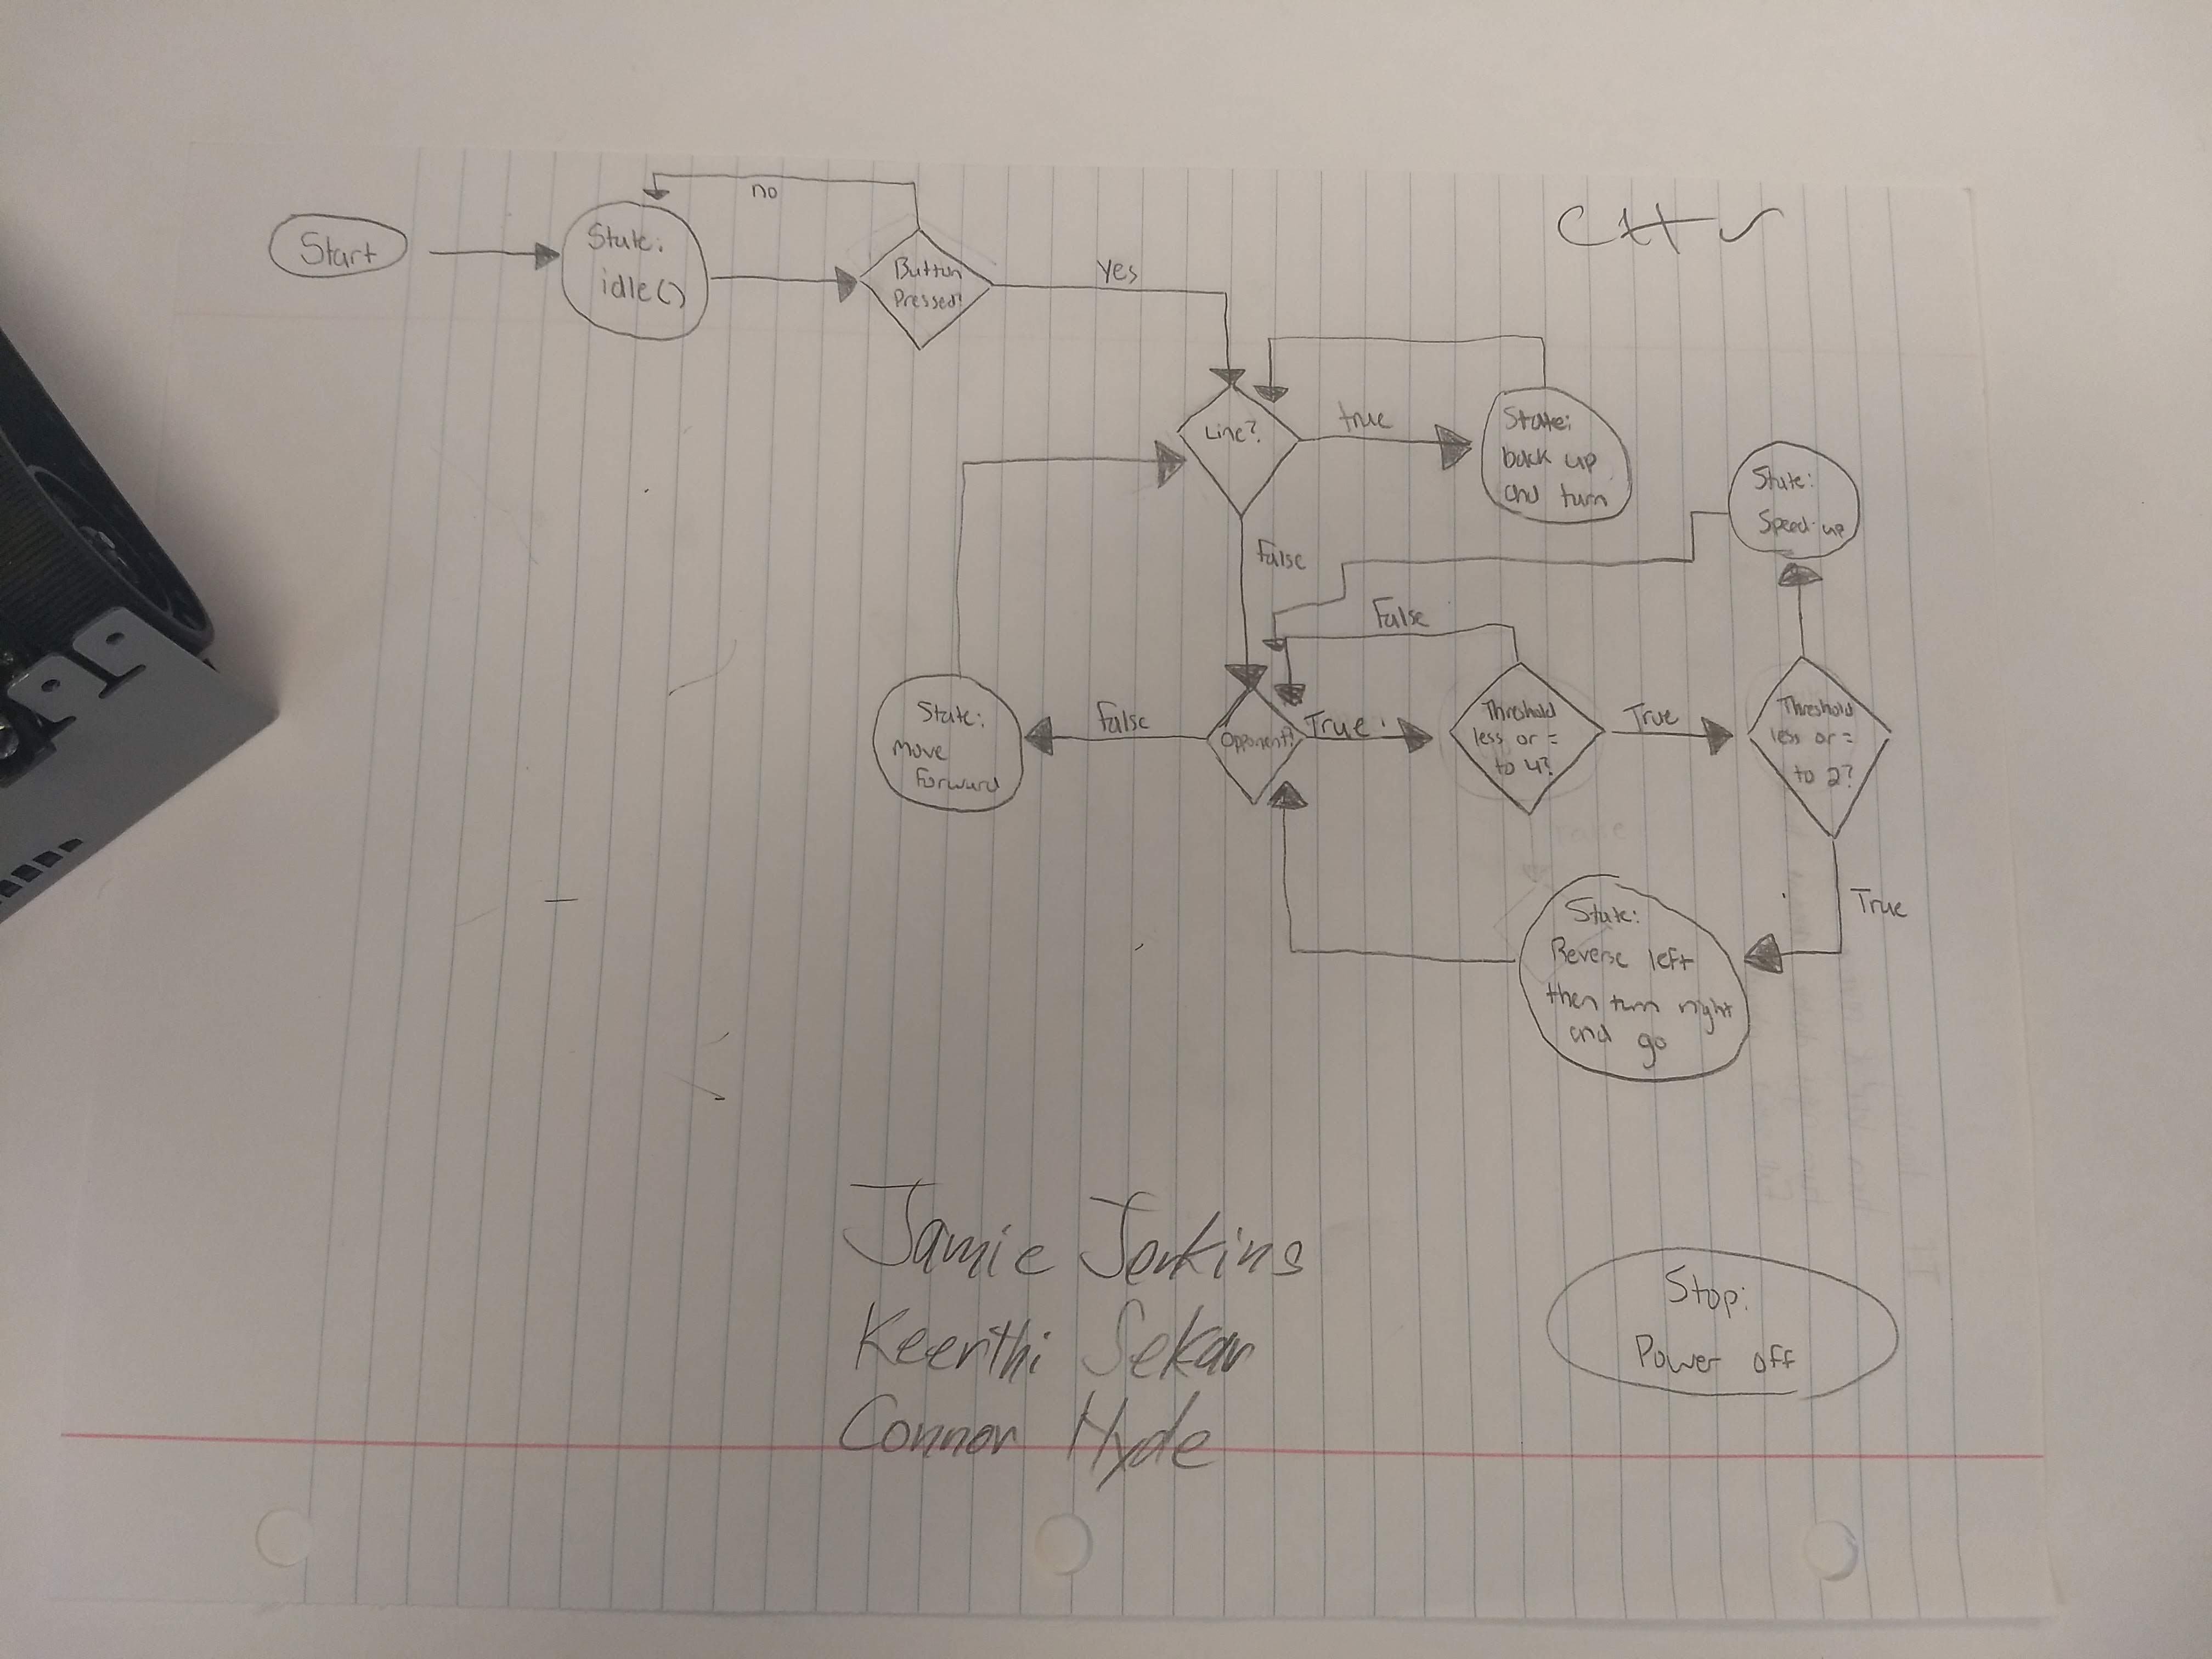 Start
State:
idle()
no
Button
Pressed?
yes
Line?
true
State:
back up
and turn
State:
Speed-up
False
False
State:
Move
Forward
False
Opponent?
True
Threshold
less or =
to 4?
True
Threshold
less or =
to 2?
True
State:
Reverse left
then turn right
and go
Jamie Jenkins
Keerthi Sekar
Connor Hyde
Stop:
Power off